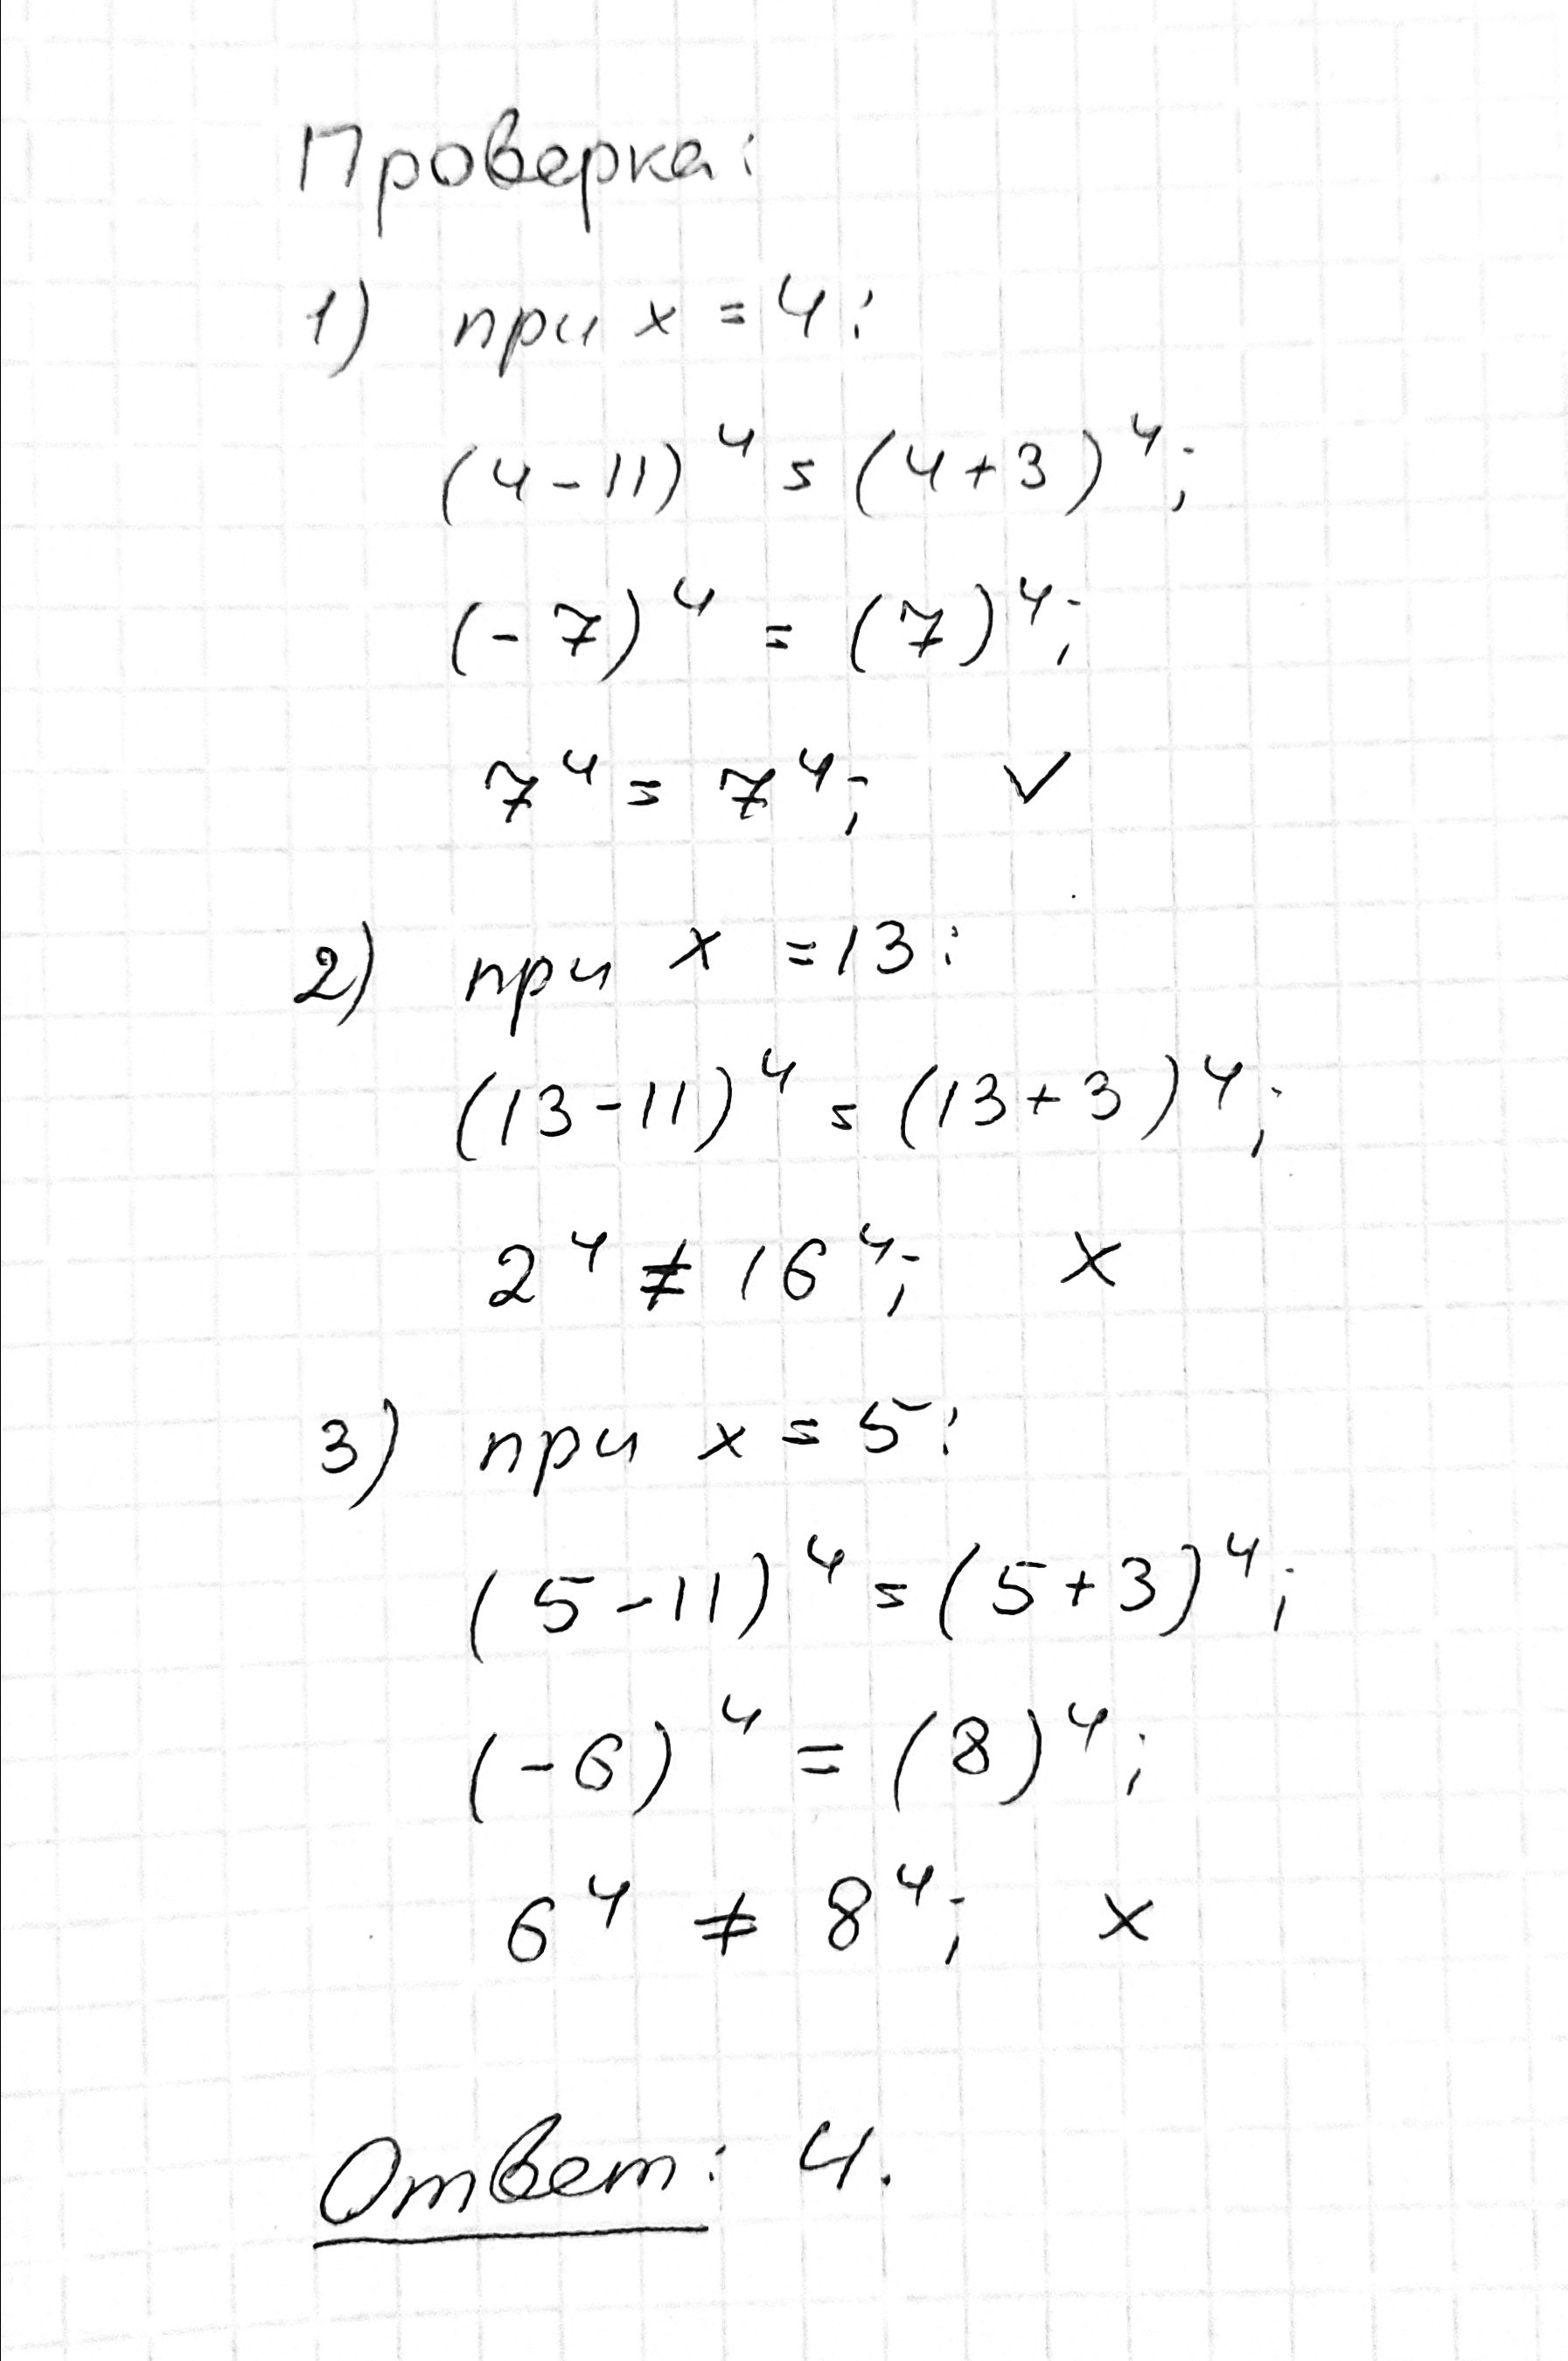 Проверка:
1) при x = 4:
(4 - 11)⁴ = (4 + 3)⁴;
(- 7)⁴ = (7)⁴;
7⁴ = 7⁴; ✓
2) при x = 13:
(13 - 11)⁴ = (13 + 3)⁴;
2⁴ ≠ 16⁴; x
3) при x = 5:
(5 - 11)⁴ = (5 + 3)⁴;
(- 6)⁴ = (8)⁴;
6⁴ ≠ 8⁴; x
Ответ: 4.